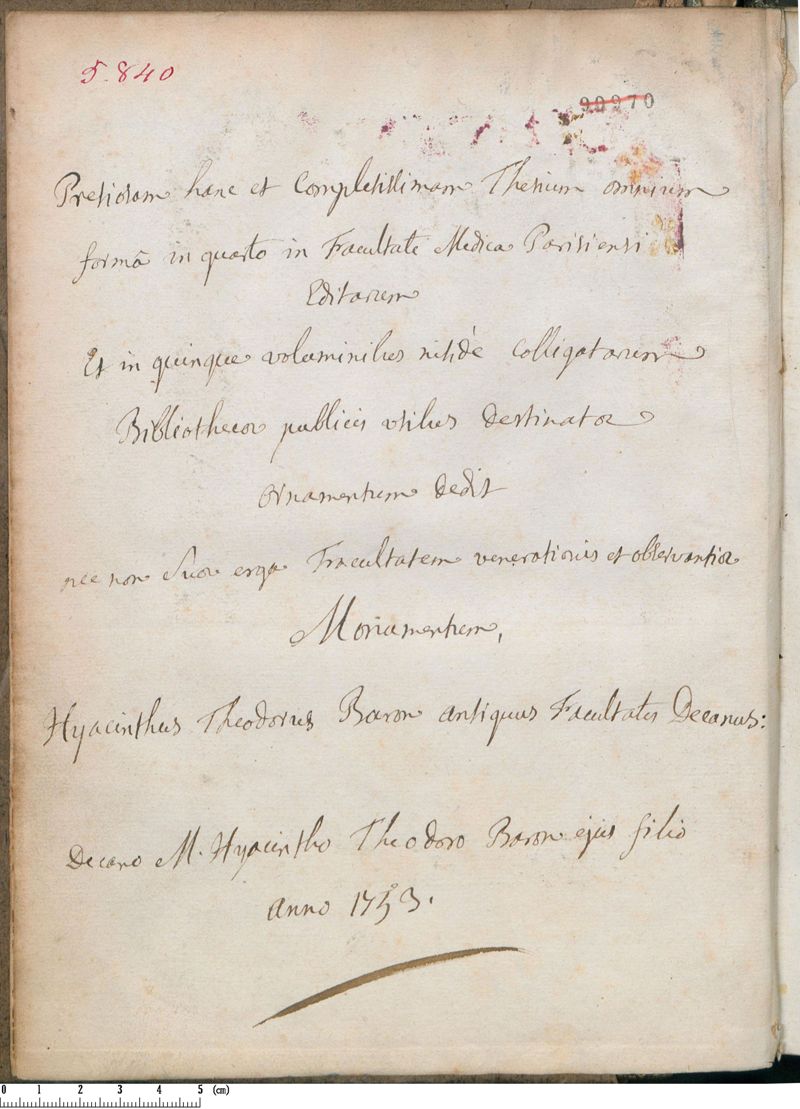 5.840
90970
Pretiosam hanc et Completissimam Thesium omnium
formâ in quarto in Facultate Medica Parisiensi
Editarum
Et in quinque voluminibus nitidè Colligatarum
Bibliothecæ publicis usibus Destinatæ
ornamentum Dedit
nec non Suæ erga Facultatem venerationis et observantiæ
Monumentum,
Hyacinthus Theodorus Baron antiquus Facultatis Decanus:
Decano M. Hyacintho Theodoro Baron ejus filio
anno 1753.
0 1 2 3 4 5 (cm)